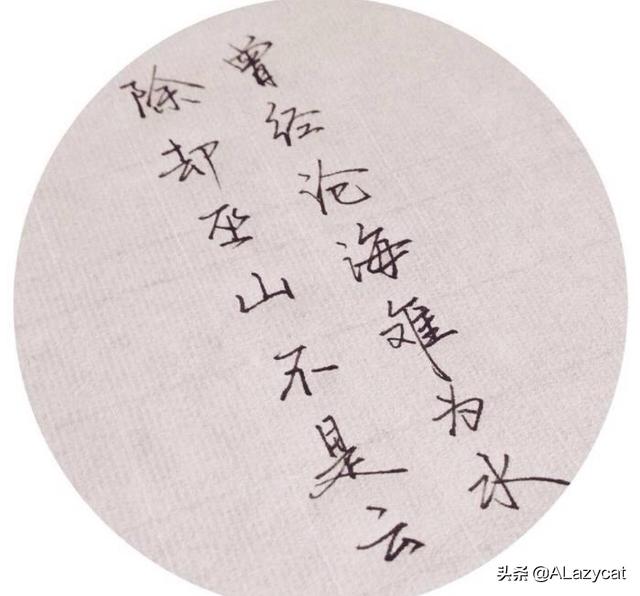 曾经沧海难为水
除却巫山不是云
头条 @ALazycat